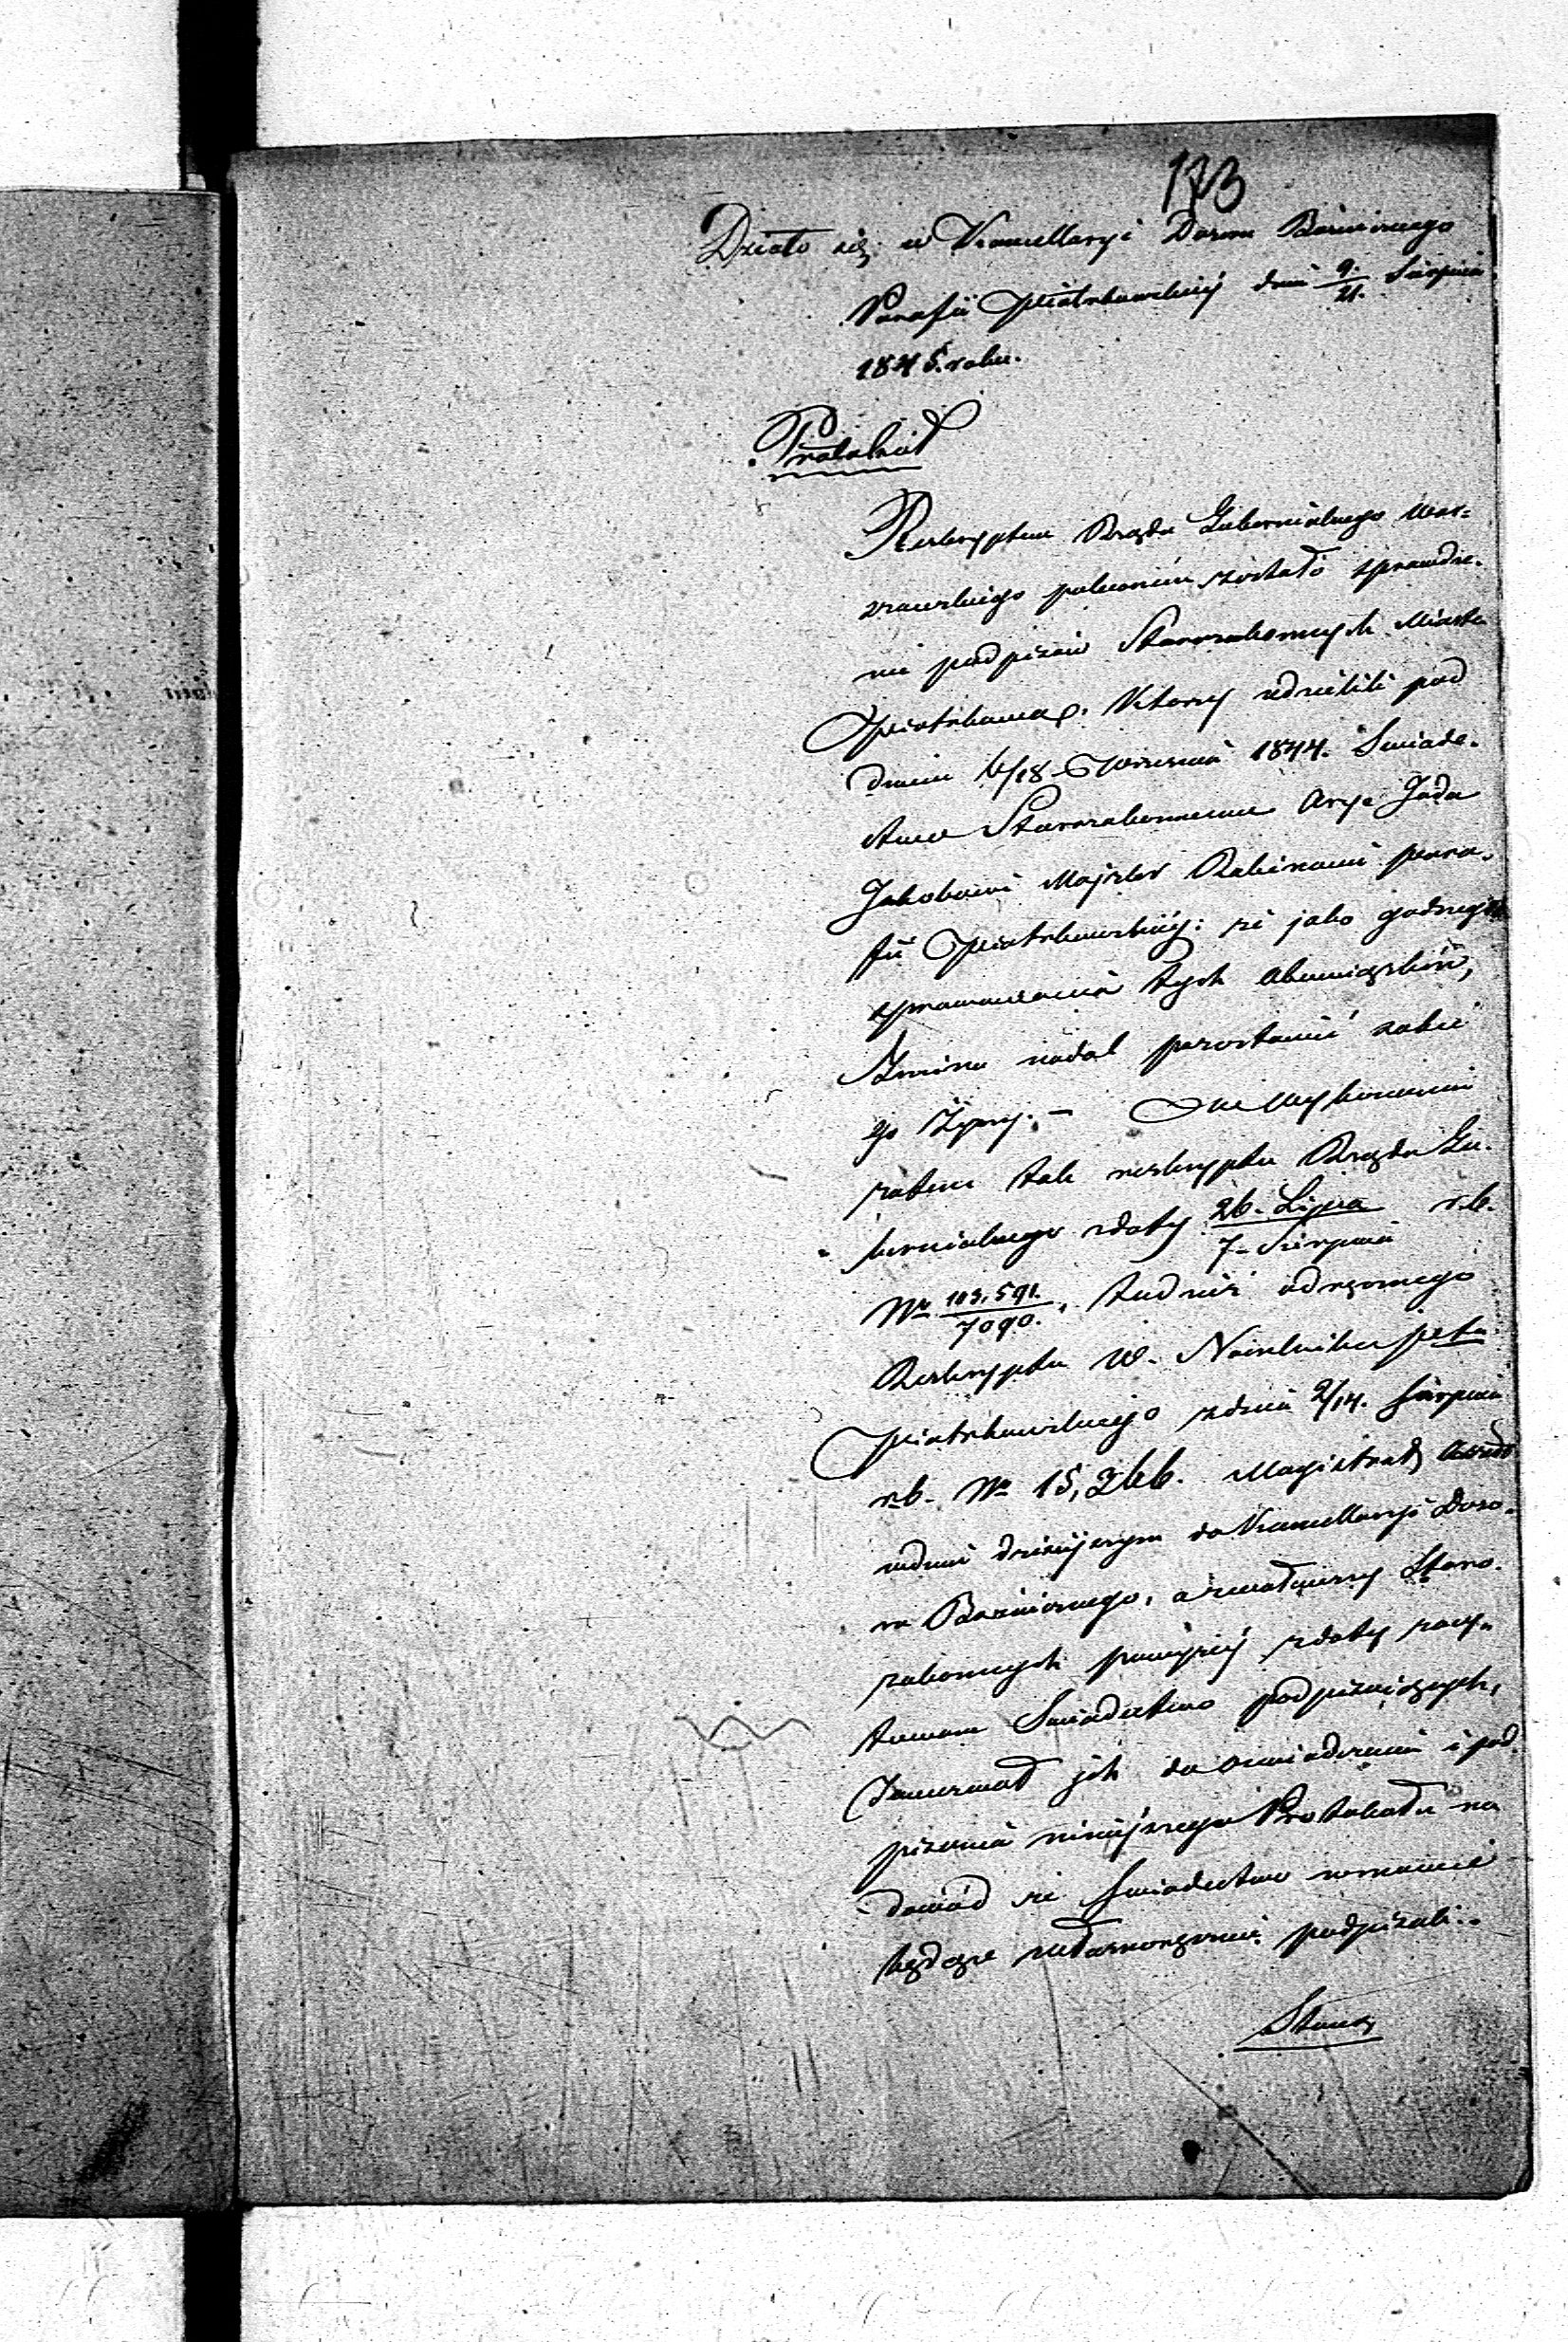 173
Działo się w Kancellaryi Dozoru Bóżniczego
Parafii Piotrkowskiéj dnia 9/21. Sierpnia
1845. roku.
Protokuł
Reskryptem Rządu Gubernialnego War-
szawskiego poleconém zostało sprawdze-
nie podpisów Starozakonnych Miasta
Piotrkowa, Którzy udzielili pod
dniem 6/18 Września 1844. Swiade-
ctwo Starozakonnemu Arye Juda
Jakobowi Majzler Rabinowi para-
fii Piotrkowskiéj: że jako godnego
sprawowania tych obowiązków,
Gmina nadal pozostawić sobie
go życzy. – We wykonaniu
zatem tak reskryptu Rządu Gu-
bernialnego z daty 26. Lipca / 7. Sierpnia r. b.
Nr 103,591. / 7090. , tudzież odręcznego
Reskryptu W. Naczelnika ptu
Piotrkowskiego z dnia 2/14. Sierpnia
r. b. Nr 15,266. Magistrat
w dniu dzisiejszym do Kancellaryi Dozo-
ru Bóżniczego, a zwoławszy Staro-
zakonnych powyżéj z daty zacy-
towane Swiadectwo podpisujących,
wezwał ich do oswiadczenia i pod-
pisania niniejszego Protokułu na
dowód że Swiadectwo w mowie
będące własnoręcznie podpisali.-
Stawa